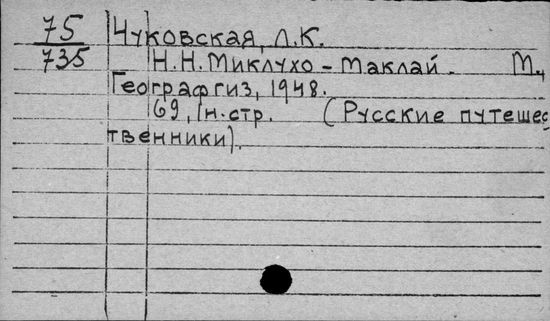 75 Чуковская, Л.К.
735 Н.Н. Миклухо-Маклай. М.,
Географгиз, 1948.
69, 1н.стр. (Русские путешес
твенники).